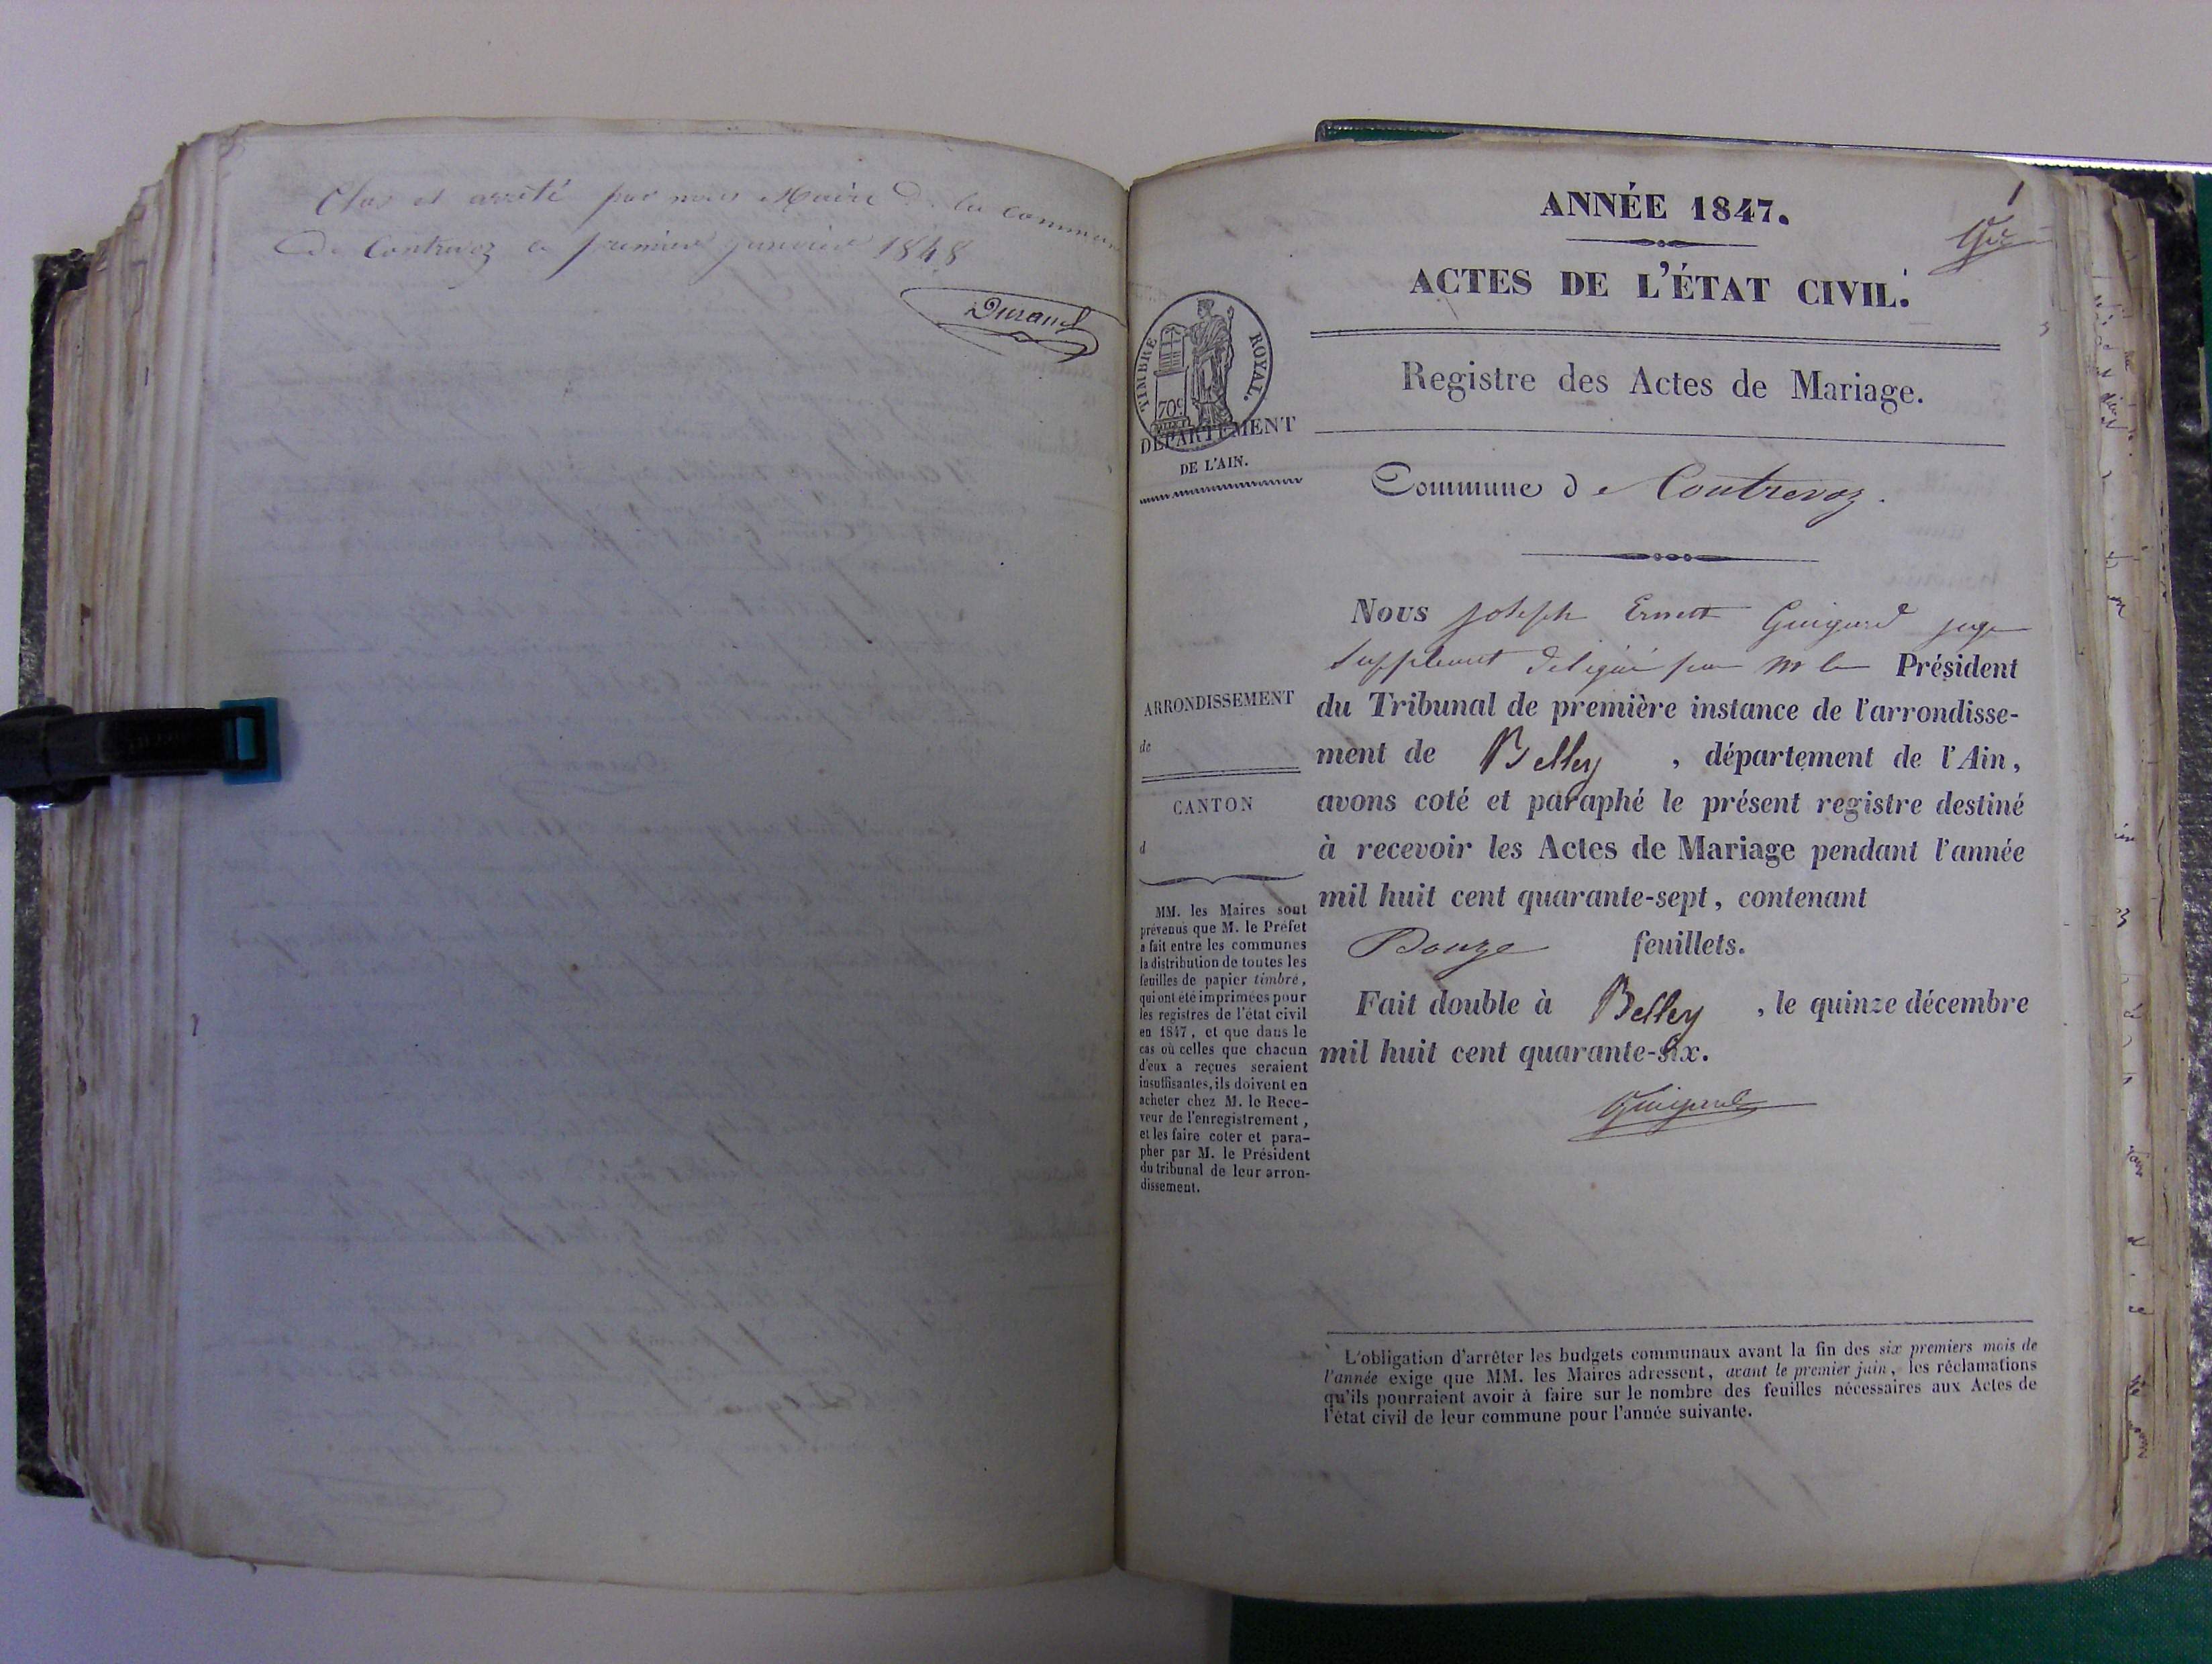 Clos et arrêté par nous Maire de la commune
de Contrevoz le premier janvier 1848
Durand
1
ANNÉE 1847.
ACTES DE L'ÉTAT CIVIL.
TIMBRE ROYAL.
70c
DÉPARTEMENT
DE L'AIN.
Registre des Actes de Mariage.
Commune de Contrevoz.
ARRONDISSEMENT
de
CANTON
d
MM. les Maires sont
prévenus que M. le Préfet
a fait entre les communes
la distribution de toutes les
feuilles de papier timbré,
qui ont été imprimées pour
les registres de l'état civil
en 1847, et que dans le
cas où celles que chacun
d'eux a reçues seraient
insuffisantes, ils doivent en
acheter chez M. le Rece-
veur de l'enregistrement,
et les faire coter et para-
pher par M. le Président
du tribunal de leur arron-
dissement.
Nous Joseph Ernest Guigard juge
suppléant délégué par Mr le Président
du Tribunal de première instance de l'arrondisse-
ment de Belley, département de l'Ain,
avons coté et paraphé le présent registre destiné
à recevoir les Actes de Mariage pendant l'année
mil huit cent quarante-sept, contenant
Douze feuillets.
Fait double à Belley, le quinze décembre
mil huit cent quarante-six.
Guigard
L'obligation d'arrêter les budgets communaux avant la fin des six premiers mois de
l'année exige que MM. les Maires adressent, avant le premier juin, les réclamations
qu'ils pourraient avoir à faire sur le nombre des feuilles nécessaires aux Actes de
l'état civil de leur commune pour l'année suivante.